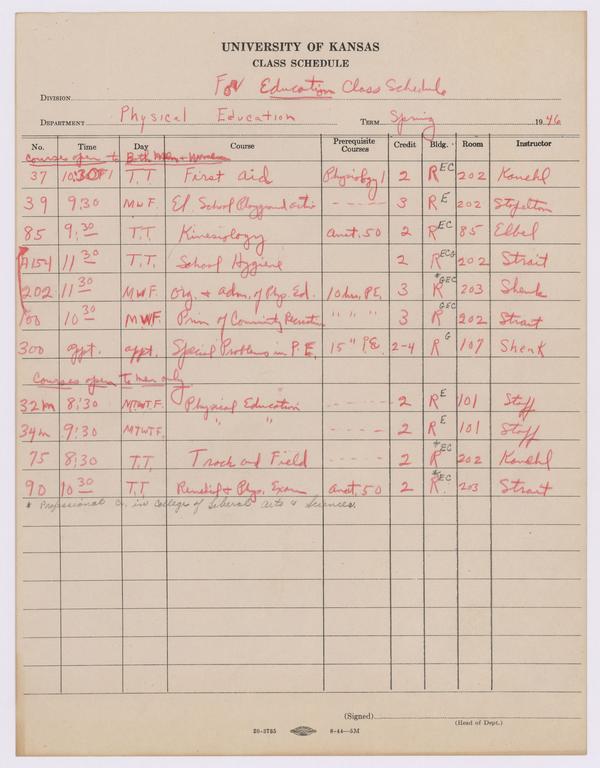 UNIVERSITY OF KANSAS
CLASS SCHEDULE
DIVISION For Education Class Schedule
DEPARTMENT Physical Education TERM Spring 1946
No. Time Day Course Prerequisite Courses Credit Bldg. Room Instructor
Courses open to Both Men & Women
37 10:30 T.T. First aid Physiology 1 2 R EC 202 Kanehl
39 9:30 MWF. El. School Playground 3 R E 202 Stapleton
85 9:30 T.T. Kinesiology Anat. 50 2 R EC 85 Elbel
A154 11:30 T.T. School Hygiene 2 R 202 Strait
202 11:30 MWF. Org. & Adm. of Phys. Ed. 10 hrs. P.E. 3 *R GEC 203 Shenk
100 10:30 MWF. Prin of Community Recreation " " " 3 R GEC 202 Strait
300 appt. appt. Special Problems in P.E. 15 " P.E. 2-4 R G 107 Shenk
Courses open to men only
32m 8:30 MTWTF. Physical Education ----- 2 R E 101 Staff
34m 9:30 MTWTF. " " ----- 2 R E 101 Staff
75 8:30 T.T. Track and Field ----- 2 *R EC 202 Kanehl
90 10:30 T.T. Remedial & Phys. Exam Anat. 50 2 *R EC 203 Strait
* Professional Co. in College of Liberal Arts & Sciences.
(Signed)
(Head of Dept.)
20-3785 8-44—5M